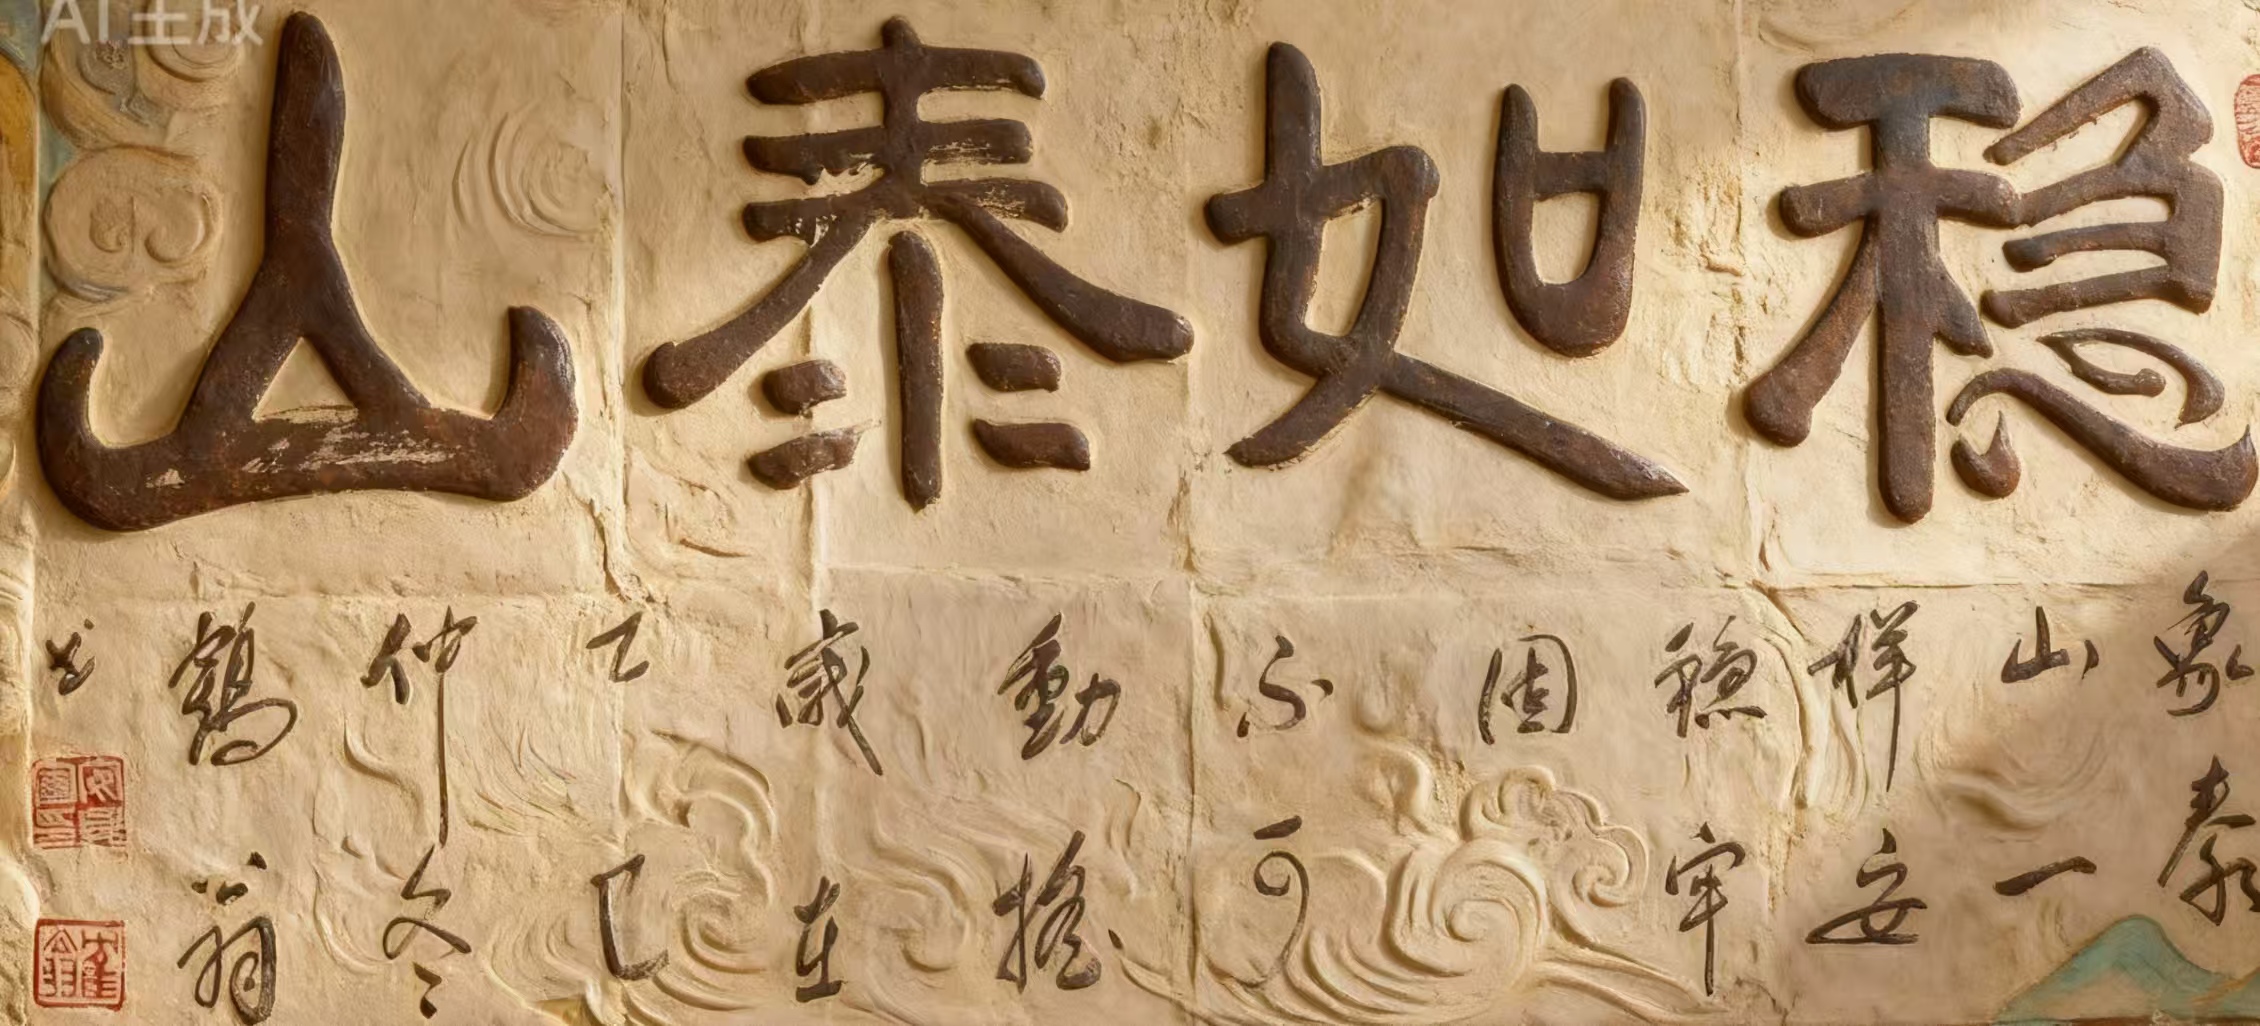 AI生成
稳如泰山
象泰
山一
样安
稳牢
固
不可
動摇
歲在
乙巳
仲冬
鶴翁
书